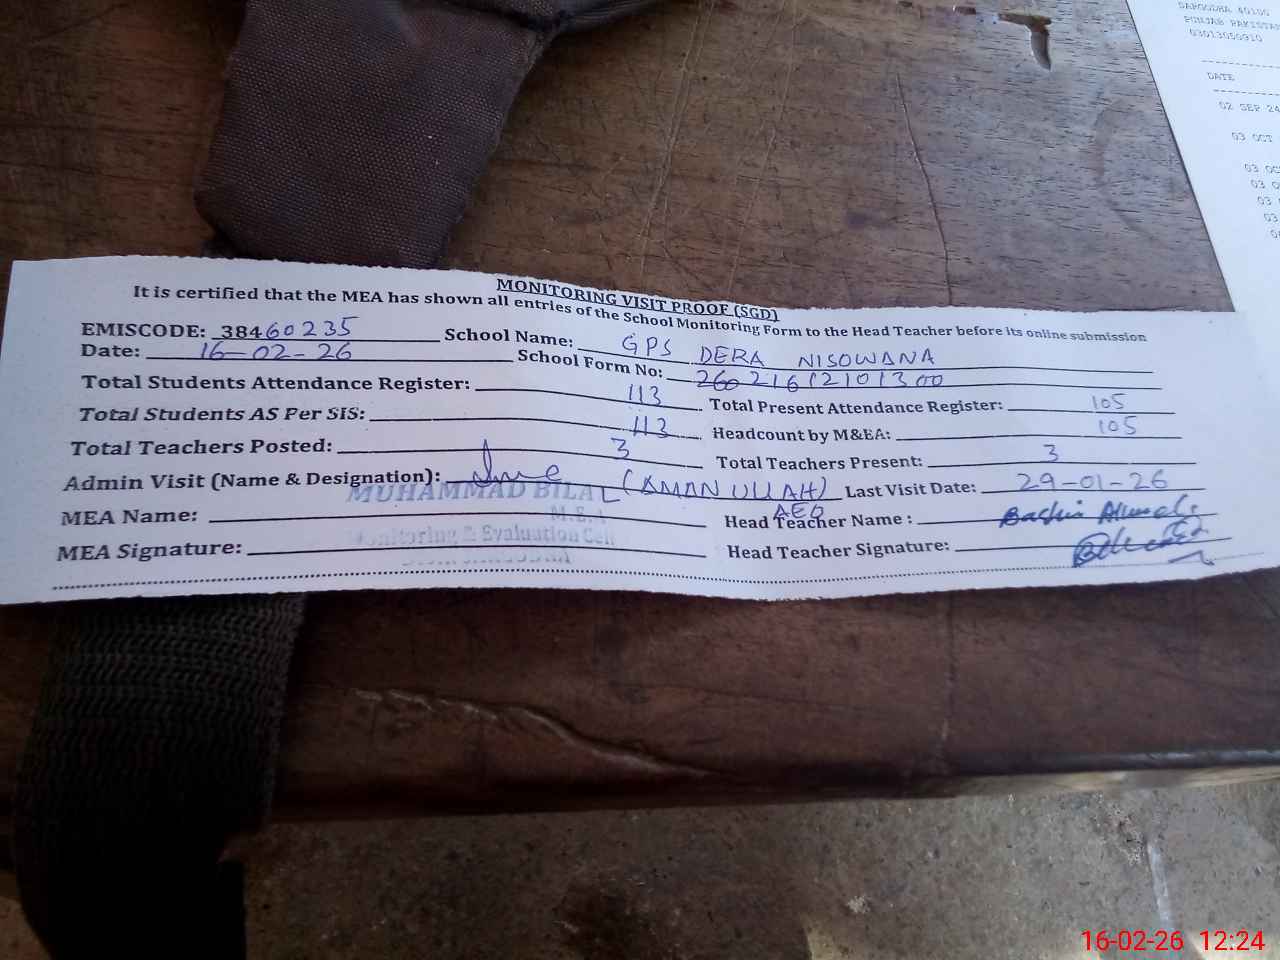 SARGODHA 40100
PUNJAB PAKISTAN
03013050910
DATE
02 SEP 24
03 OCT
03 OC
03 O
03
03
MONITORING VISIT PROOF (SGD)
It is certified that the MEA has shown all entries of the School Monitoring Form to the Head Teacher before its online submission
EMISCODE: 38460235 School Name: GPS DERA NISOWANA
Date: 16-02-26 School Form No: 21612101300
Total Students Attendance Register: 113 Total Present Attendance Register: 105
Total Students AS Per SIS: 113 Headcount by M&EA: 105
Total Teachers Posted: 3 Total Teachers Present: 3
Admin Visit (Name & Designation): (AMAN ULLAH) AEO Last Visit Date: 29-01-26
MUHAMMAD BILAL
MEA Name: M.E.A Head Teacher Name : Bashir Ahmad
Monitoring & Evaluation Cell
MEA Signature: Head Teacher Signature:
16-02-26 12:24